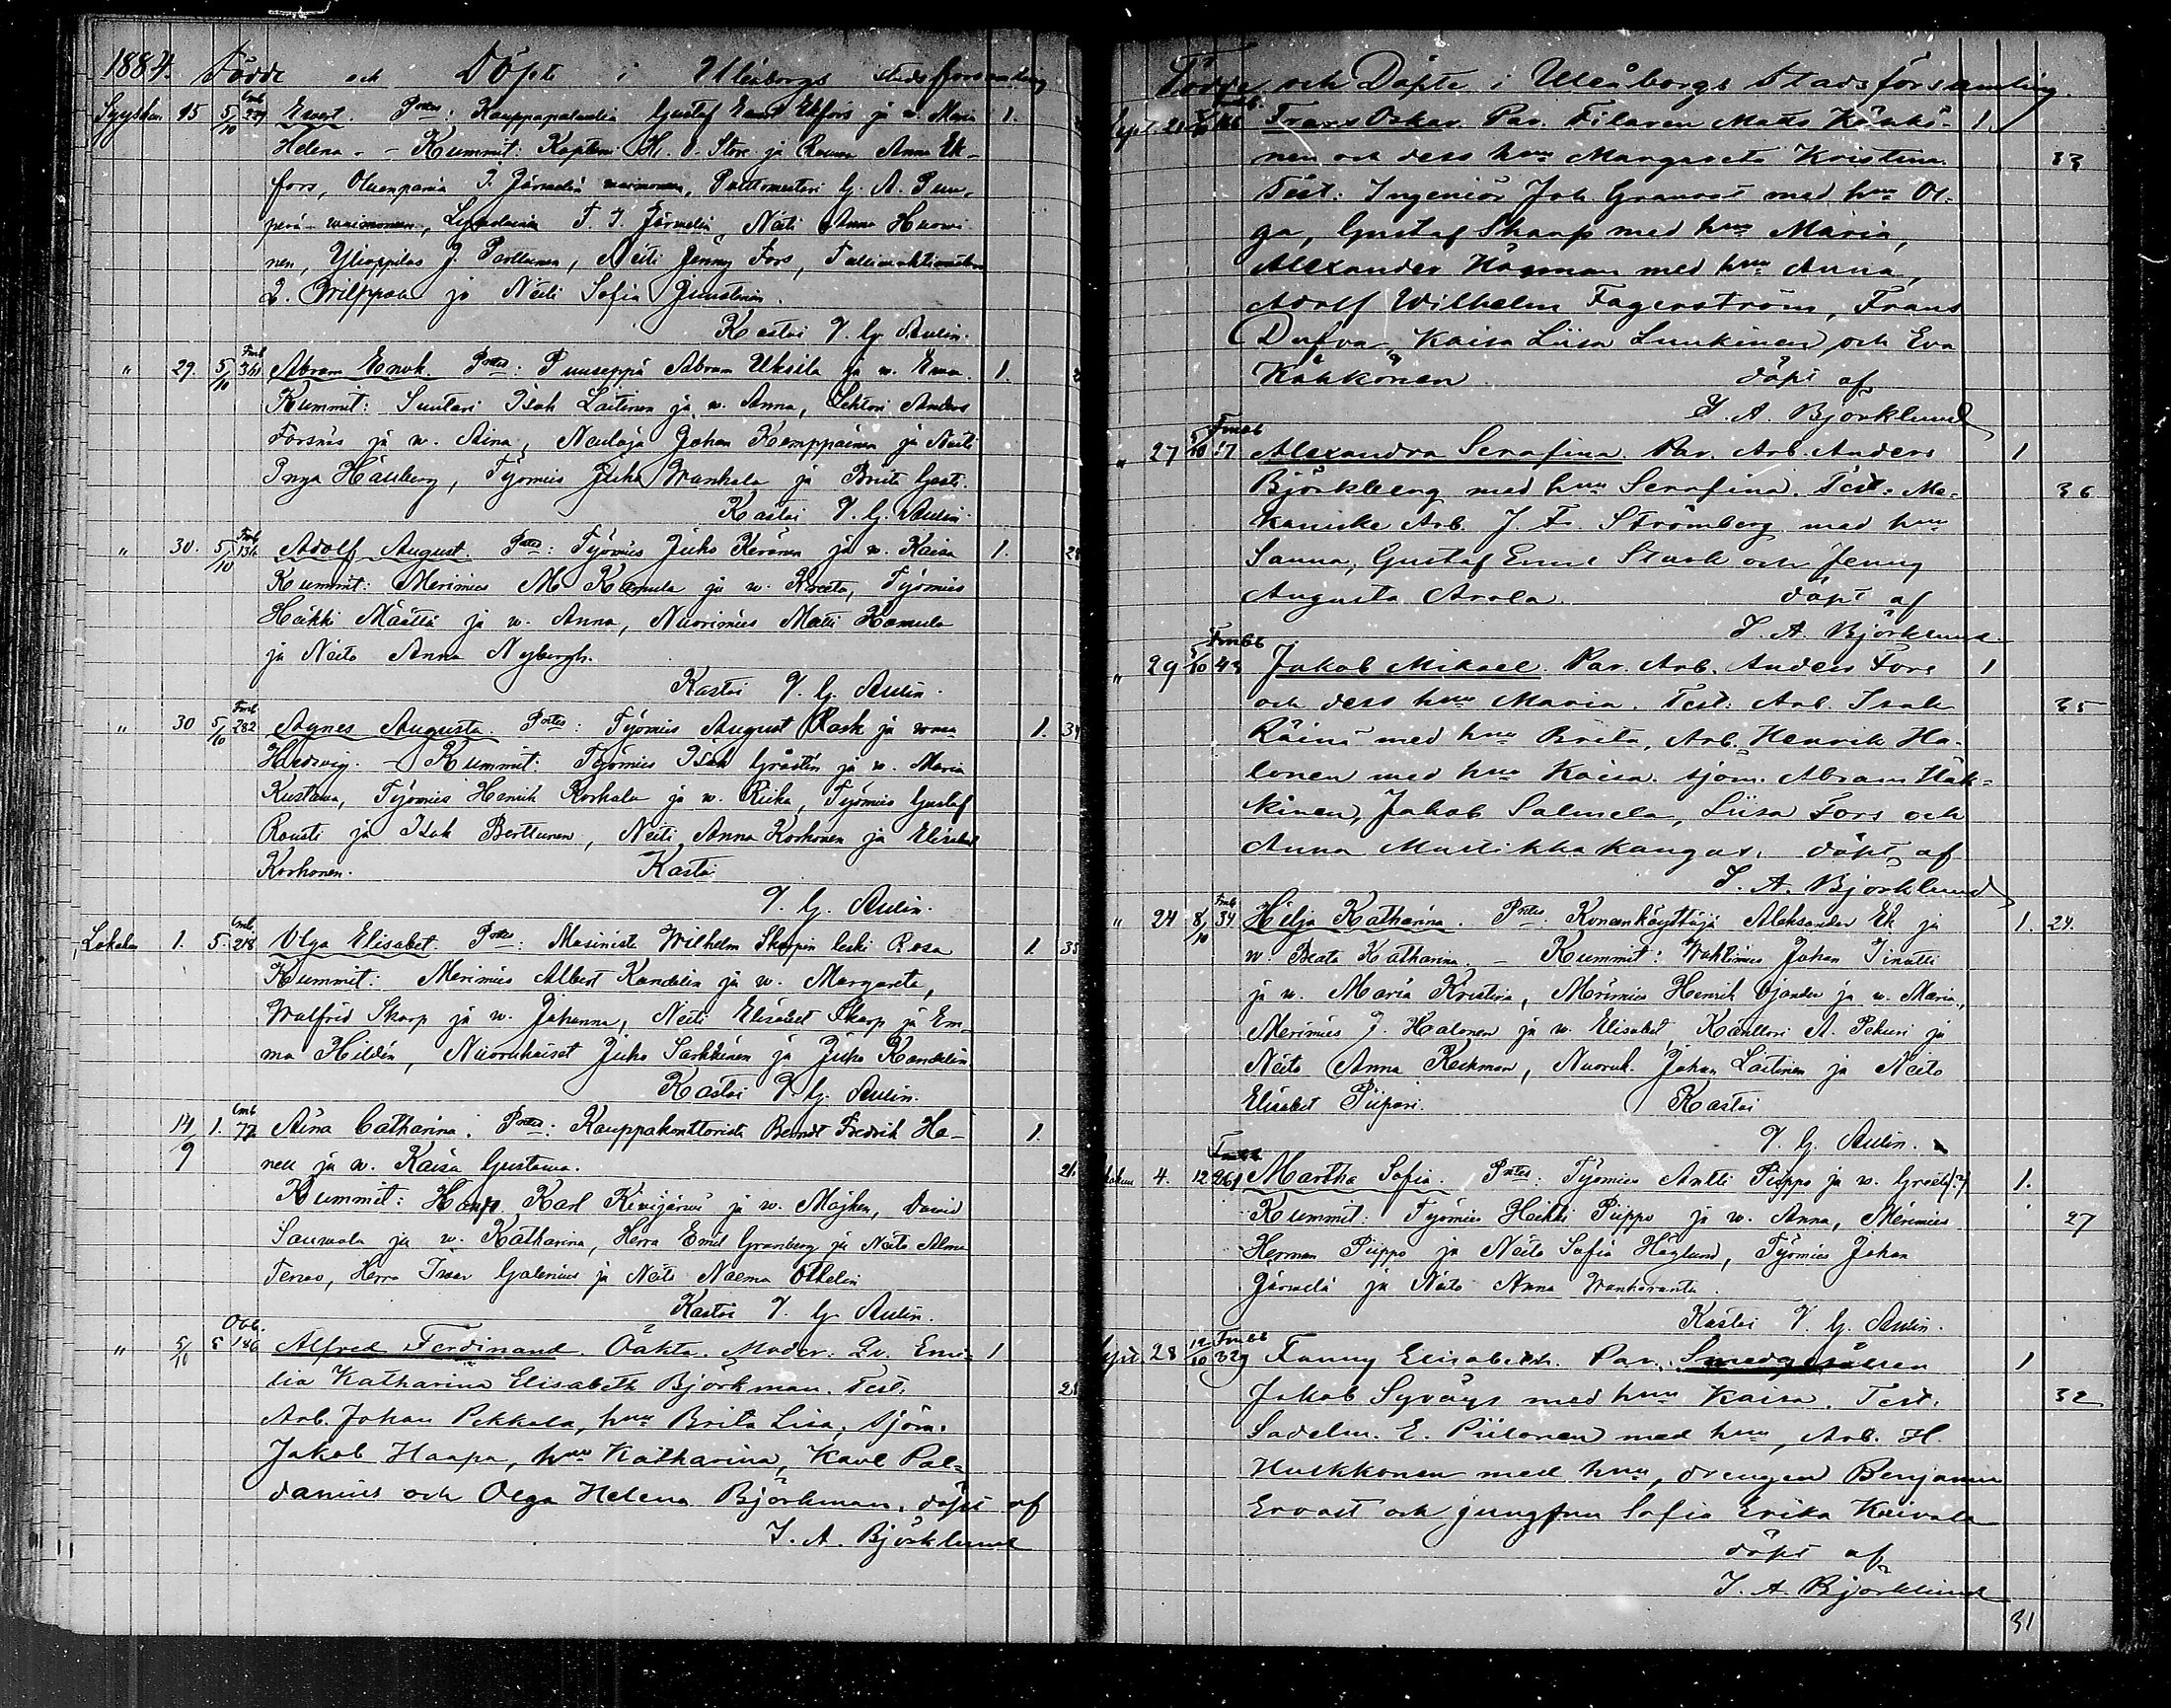 1884. Födde och Döpte i Uleåborgs stadsförsamling
Syyskuu 15 5/10 Evert. Prtes: Kauppapalvelia Gustaf Emil Ekfors ja w. Maria 1.
Helena. - Kummit: Kapteni H. J. Store ja Rouva Anna Ek-
fors, Oluenpania J. Järvelin waimonen, G. A.
perä waimonen, F. J. Järvelin, Neiti Anna Hurvi-
nen, Ylioppilas J. Parttunen, Neiti Jenny Fors,
2. ja Neiti Sofia Junttinen.
Kastoi V. G. Aulin.
" 29. 5/10 Fmb 361 Abram Enok. Prtes: Puuseppä Abram Uksila ja w. Eva. 1.
Kummit: Suutari Isak Laitinen ja w. Anna, Lektori Anders
Forsnäs ja w. Aina, Neuloja Johan Kemppainen ja Neiti
Inga Hallberg, Työmies Juho Wanhala ja Brita
Kastoi V. G. Aulin.
" 30. 5/10 Fmb 136 Adolf August. Prtes: Työmies Juho Keränen ja w. Kaisa 1. 28
Kummit: Merimies M Karpula ja w. Kreeta, Työmies
Heikki Määttä ja w. Anna, Nuorimies Matti Hamula
ja Neito Anna Nybergh.
Kastoi V. G. Aulin.
" 30 5/10 Fmb 282 Agnes Augusta. Prtes: Työmies August Rask ja wmo 1. 34
Hedvig. - Kummit: Työmies Isak Gråsten ja w. Maria
Kustawa, Työmies Henrik Korkala ja w. Riika, Työmies Gustaf
Rausti ja Isak Berttunen, Neiti Anna Korhonen ja Elisabet
Korhonen. Kastoi
V. G. Aulin.
Lokakuu 1. 5. Cmb. 218 Olga Elisabet. Prtes: Masinista Wilhelm Skarpin leski Rosa 1. 35
Kummit: Merimies Albert Kandelin ja w. Margareta,
Walfrid Skarp ja w. Johanna, Neiti Elisabet Skarp ja Em-
ma Hildén, Nuorukaiset Juho Sarkkinen ja Juho Kandelin.
Kastoi V. G. Aulin.
14/9 1. Cmb 77 Aina Catharina. Prtes: Kauppakonttoristi Berndt Fredrik Ha- 1.
nell ja w. Kaisa Gustawa. 26
Kummit: Karl Kivijärvi ja w. Majken, David
Sauwala ja w. Katharina, Herra Emil Granberg ja Neito Alma
Terwo, Herra Ivar Galenius ja Neiti Naema Othelin
Kastoi V. G. Aulin.
" 5/10 5 Obb. 186 Alfred Ferdinand. Oäkta. Moder: Qv. Emi- 1
lia Katharina Elisabeth Björkman. Test.
Arb. Johan Pekkala, hnu Brita Lisa, sjöm.
Jakob Haapa, hnu Katharina, Karl Pal-
danius och Olga Helena Björkman. döpt af
J. A. Björklund
Födde och Döpte i Uleåborgs Stadsförsamling.
Sept. 21 Frans Oskar. Par. Filaren Matts Kähkö- 1.
nen och dess hnu Margareta Kristina. 33
Test: Ingeniör Joh. Granroth med hnu Ol-
ga, Gustaf Skarp med hnu Maria,
Alexander Hägman med hnu Anna,
Adolf Wilhelm Fagerström, Frans
Dufva, Kaisa Liisa Luukinen och Eva
Kähkönen. döpt af
J. A. Björklund
" 27 5/10 Fmbb 17 Alexandra Serafina. Par. Arb. Anders 1
Björkberg med hnu Serafina. Test: Me- 36
kaniske Arb. J. F. Strömberg med hnu
Sanna, Gustaf Emil Stark och Jenny
Augusta Arola. döpt af
J. A. Björklund.
" 29 5/10 Fmbb 43 Jakob Mikael. Par. Arb. Anders Fors 1
och dess hnu Maria. Test: Arb. Isak 35
Räinä med hnu Brita, Arb. Henrik Ha-
lonen med hnu Kaisa. sjöm. Abram Häk-
kinen, Jakob Salmela, Liisa Fors och
Anna Mustikkakangas. döpt af
J. A. Björklund
" 24 8/10 Fmb 34 Helja Katharina. Prtes Koneenkäyttäjä Aleksander Ek ja 1. 24.
w. Beata Katharina. - Kummit: Wahtimies Johan Jinatti
ja w. Maria Kristina, Merimies Henrik Ojander ja w. Maria,
Merimies J. Halonen ja w. Elisabet, Kanttori A. Pekuri ja
Neito Anna Keckman, Nuoruk. Johan Laitinen ja Neito
Elisabet Piipari. Kastoi
V. G. Aulin.
4. 12 Fmbb 261 Martha Sofia. Prtes: Työmies Antti Piippo ja w. Greeta 1.
Kummit: Työmies Heikki Piippo ja w. Anna, Merimies 27
Herman Piippo ja Neito Sofia Höglund, Työmies Johan
Järvelä ja Neito Anna Wanharanta.
Kastoi V. G. Aulin.
Sept. 28 12/10 Fmbb 329 Fanny Elisabeth. Par. Smedgesällen 1
Jakob Syväys med hnu Kaisa. Test. 32
Sadelm. E. Piilonen med hnu, Arb. H.
Huskkonen med hnu, drengen Benjamin
Ervast och jungfrun Sofia Erika Keivala
döpt af
J. A. Björklund
31